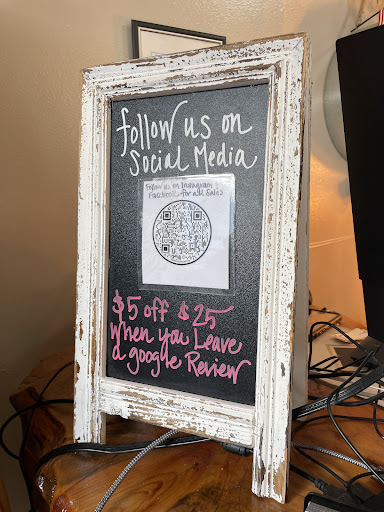 follow us on
Social Media
Follow us on Instagram +
Facebook for all Sales
$5 off $25
when you Leave
a google Review